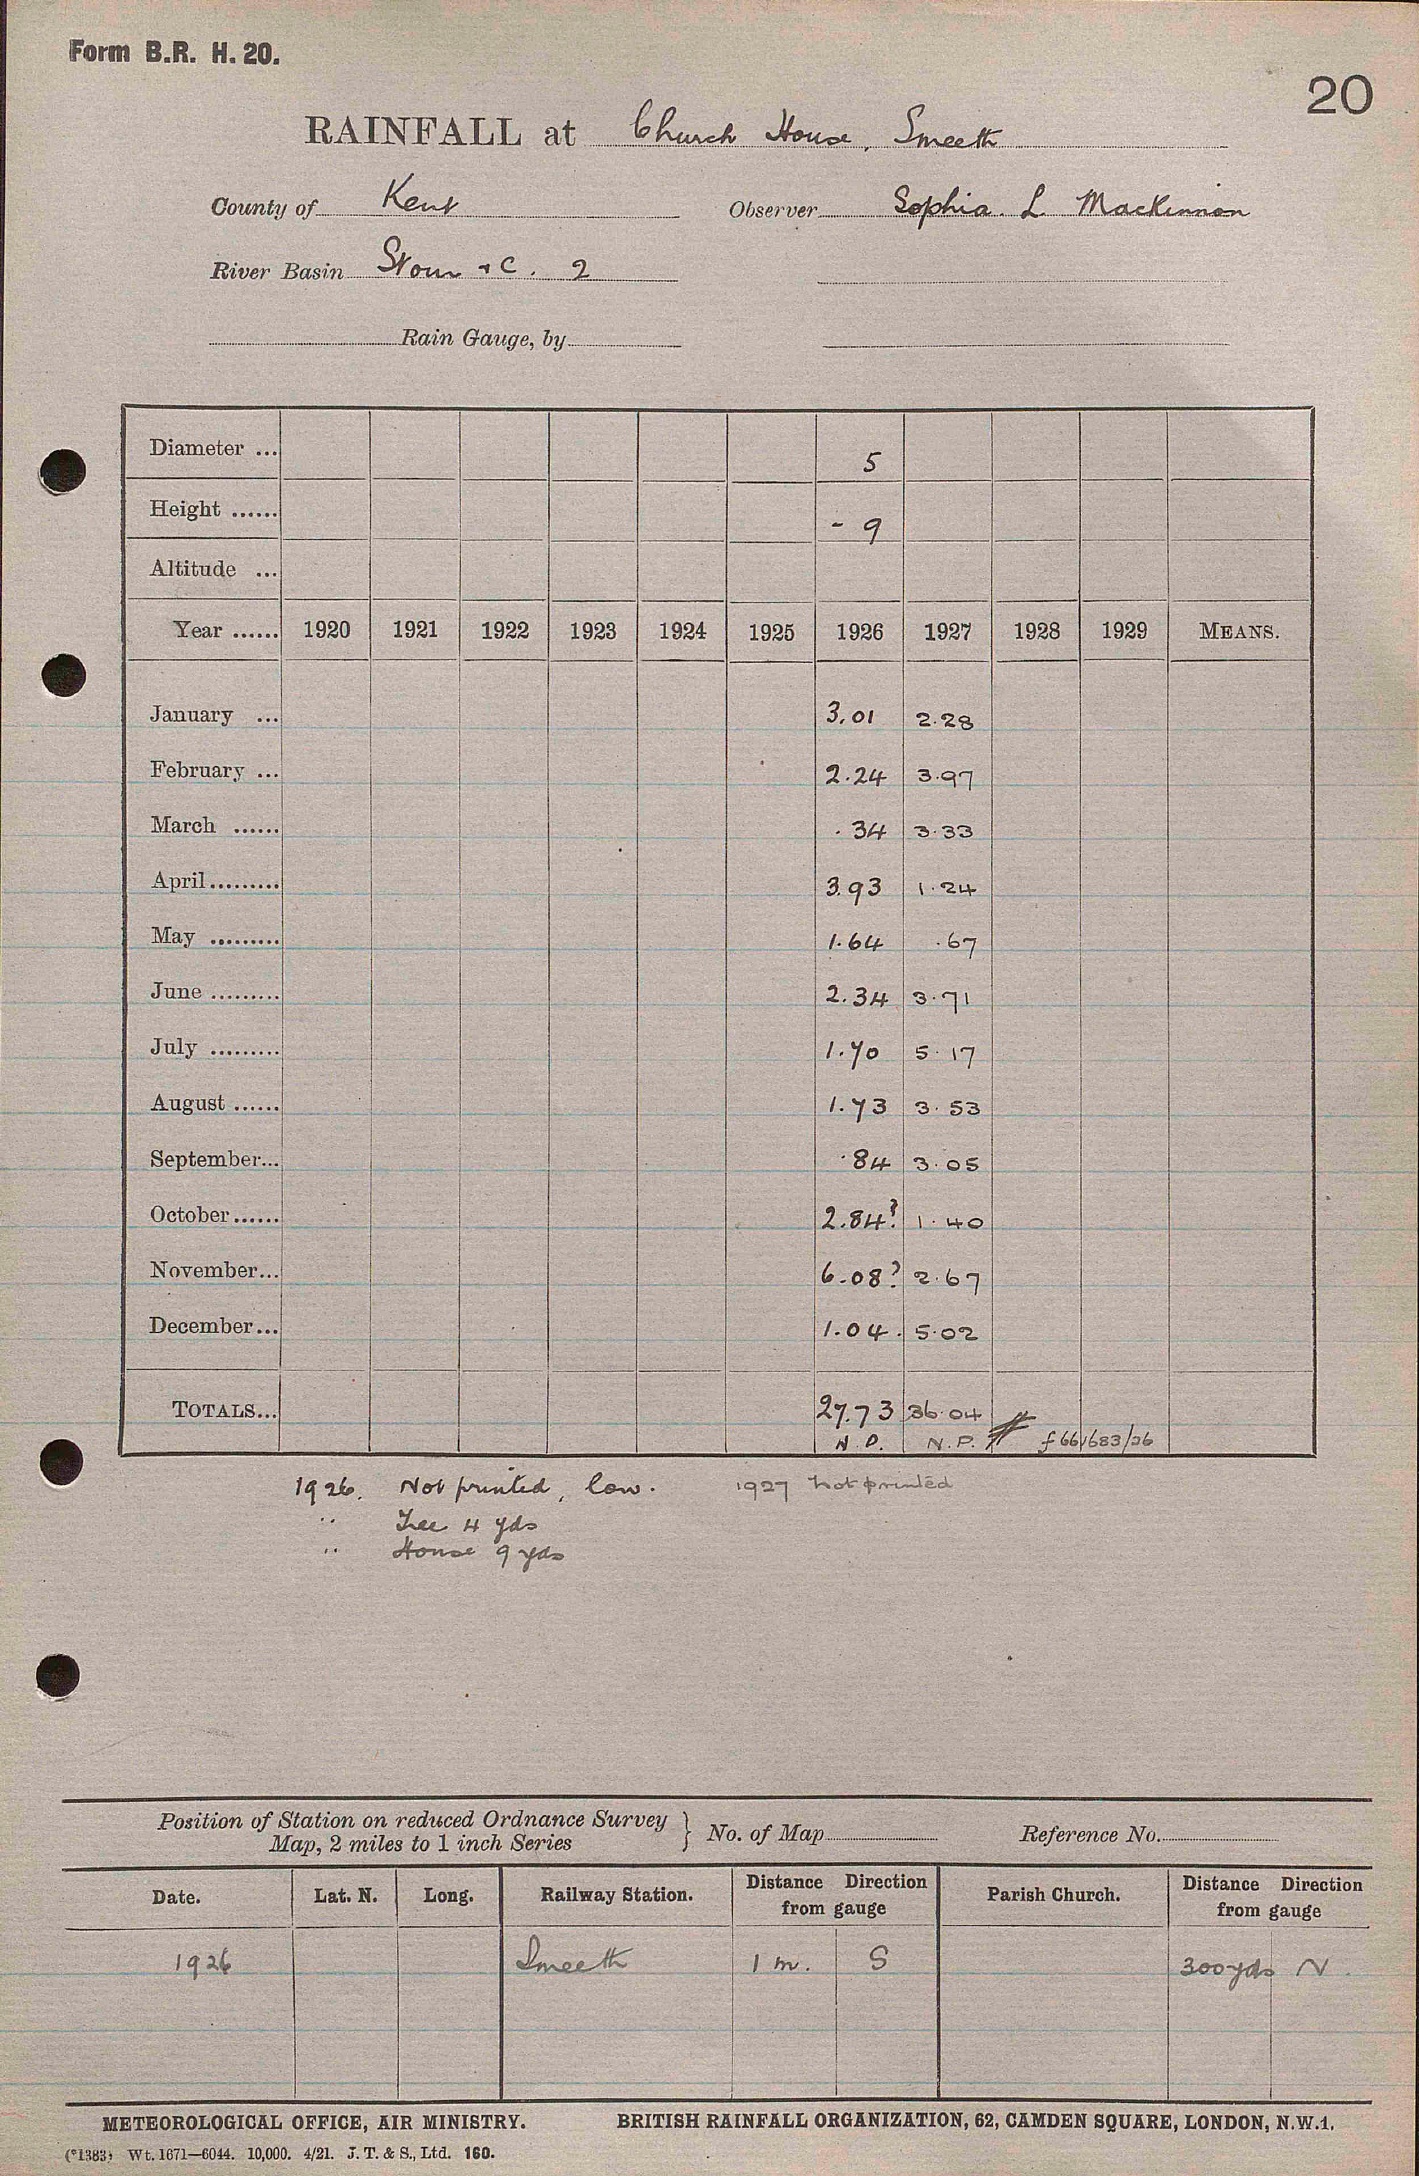 Form B.R. H. 20.
20
RAINFALL at Church House, Smeeth
County of Kent Observer Sophia. L. MacKinnon
River Basin Stour &c. 2
Rain Gauge, by
Diameter ... 5
Height ...... - 9
Altitude ...
Year ...... 1920 1921 1922 1923 1924 1925 1926 1927 1928 1929 MEANS.
January ... 3.01 2.28
February ... 2.24 3.97
March ...... .34 3.33
April ......... 3.93 1.24
May ......... 1.64 .67
June ......... 2.34 3.71
July ......... 1.70 5.17
August ...... 1.73 3.53
September... .84 3.05
October ...... 2.84? 1.40
November... 6.08? 2.67
December... 1.04. 5.02
TOTALS... 27.73 36.04
N.P. N.P. f661683/26
1926. Not printed, low. 1927 not printed
" Tree 4 yds
" House 9 yds
Position of Station on reduced Ordnance Survey
Map, 2 miles to 1 inch Series } No. of Map Reference No.
Date. Lat. N. Long. Railway Station. Distance Direction from gauge Parish Church. Distance Direction from gauge
1926 Smeeth 1 m. S 300yds N.
METEOROLOGICAL OFFICE, AIR MINISTRY. BRITISH RAINFALL ORGANIZATION, 62, CAMDEN SQUARE, LONDON, N.W.1.
(*1383) Wt. 1671—6044. 10,000. 4/21. J. T. & S., Ltd. 160.